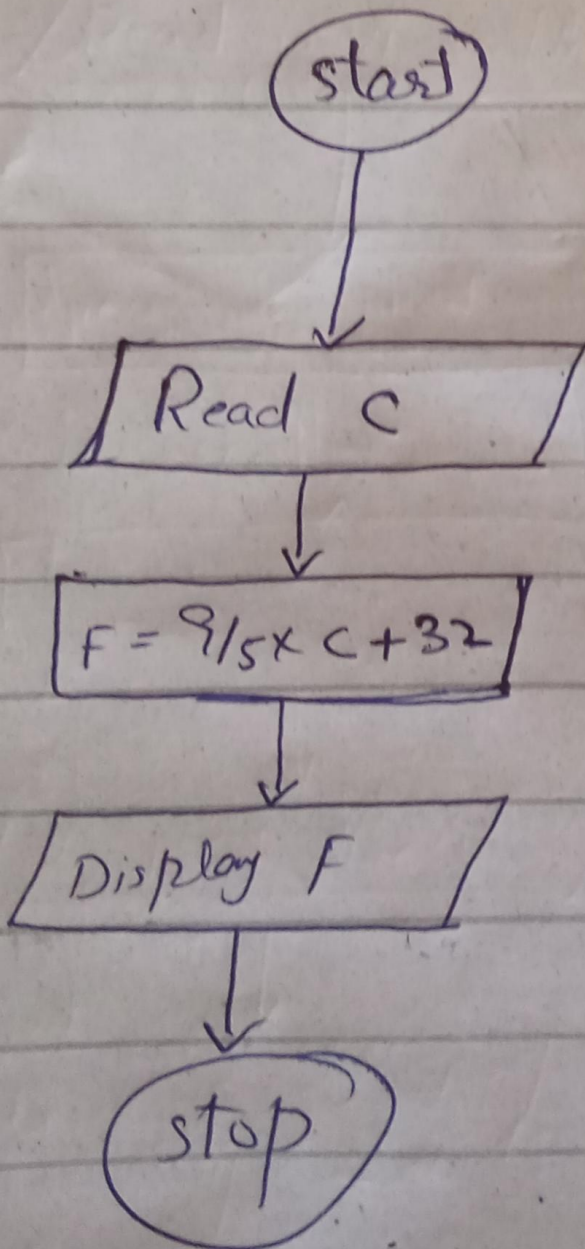 start
Read C
F = 9/5 x C + 32
Display F
stop